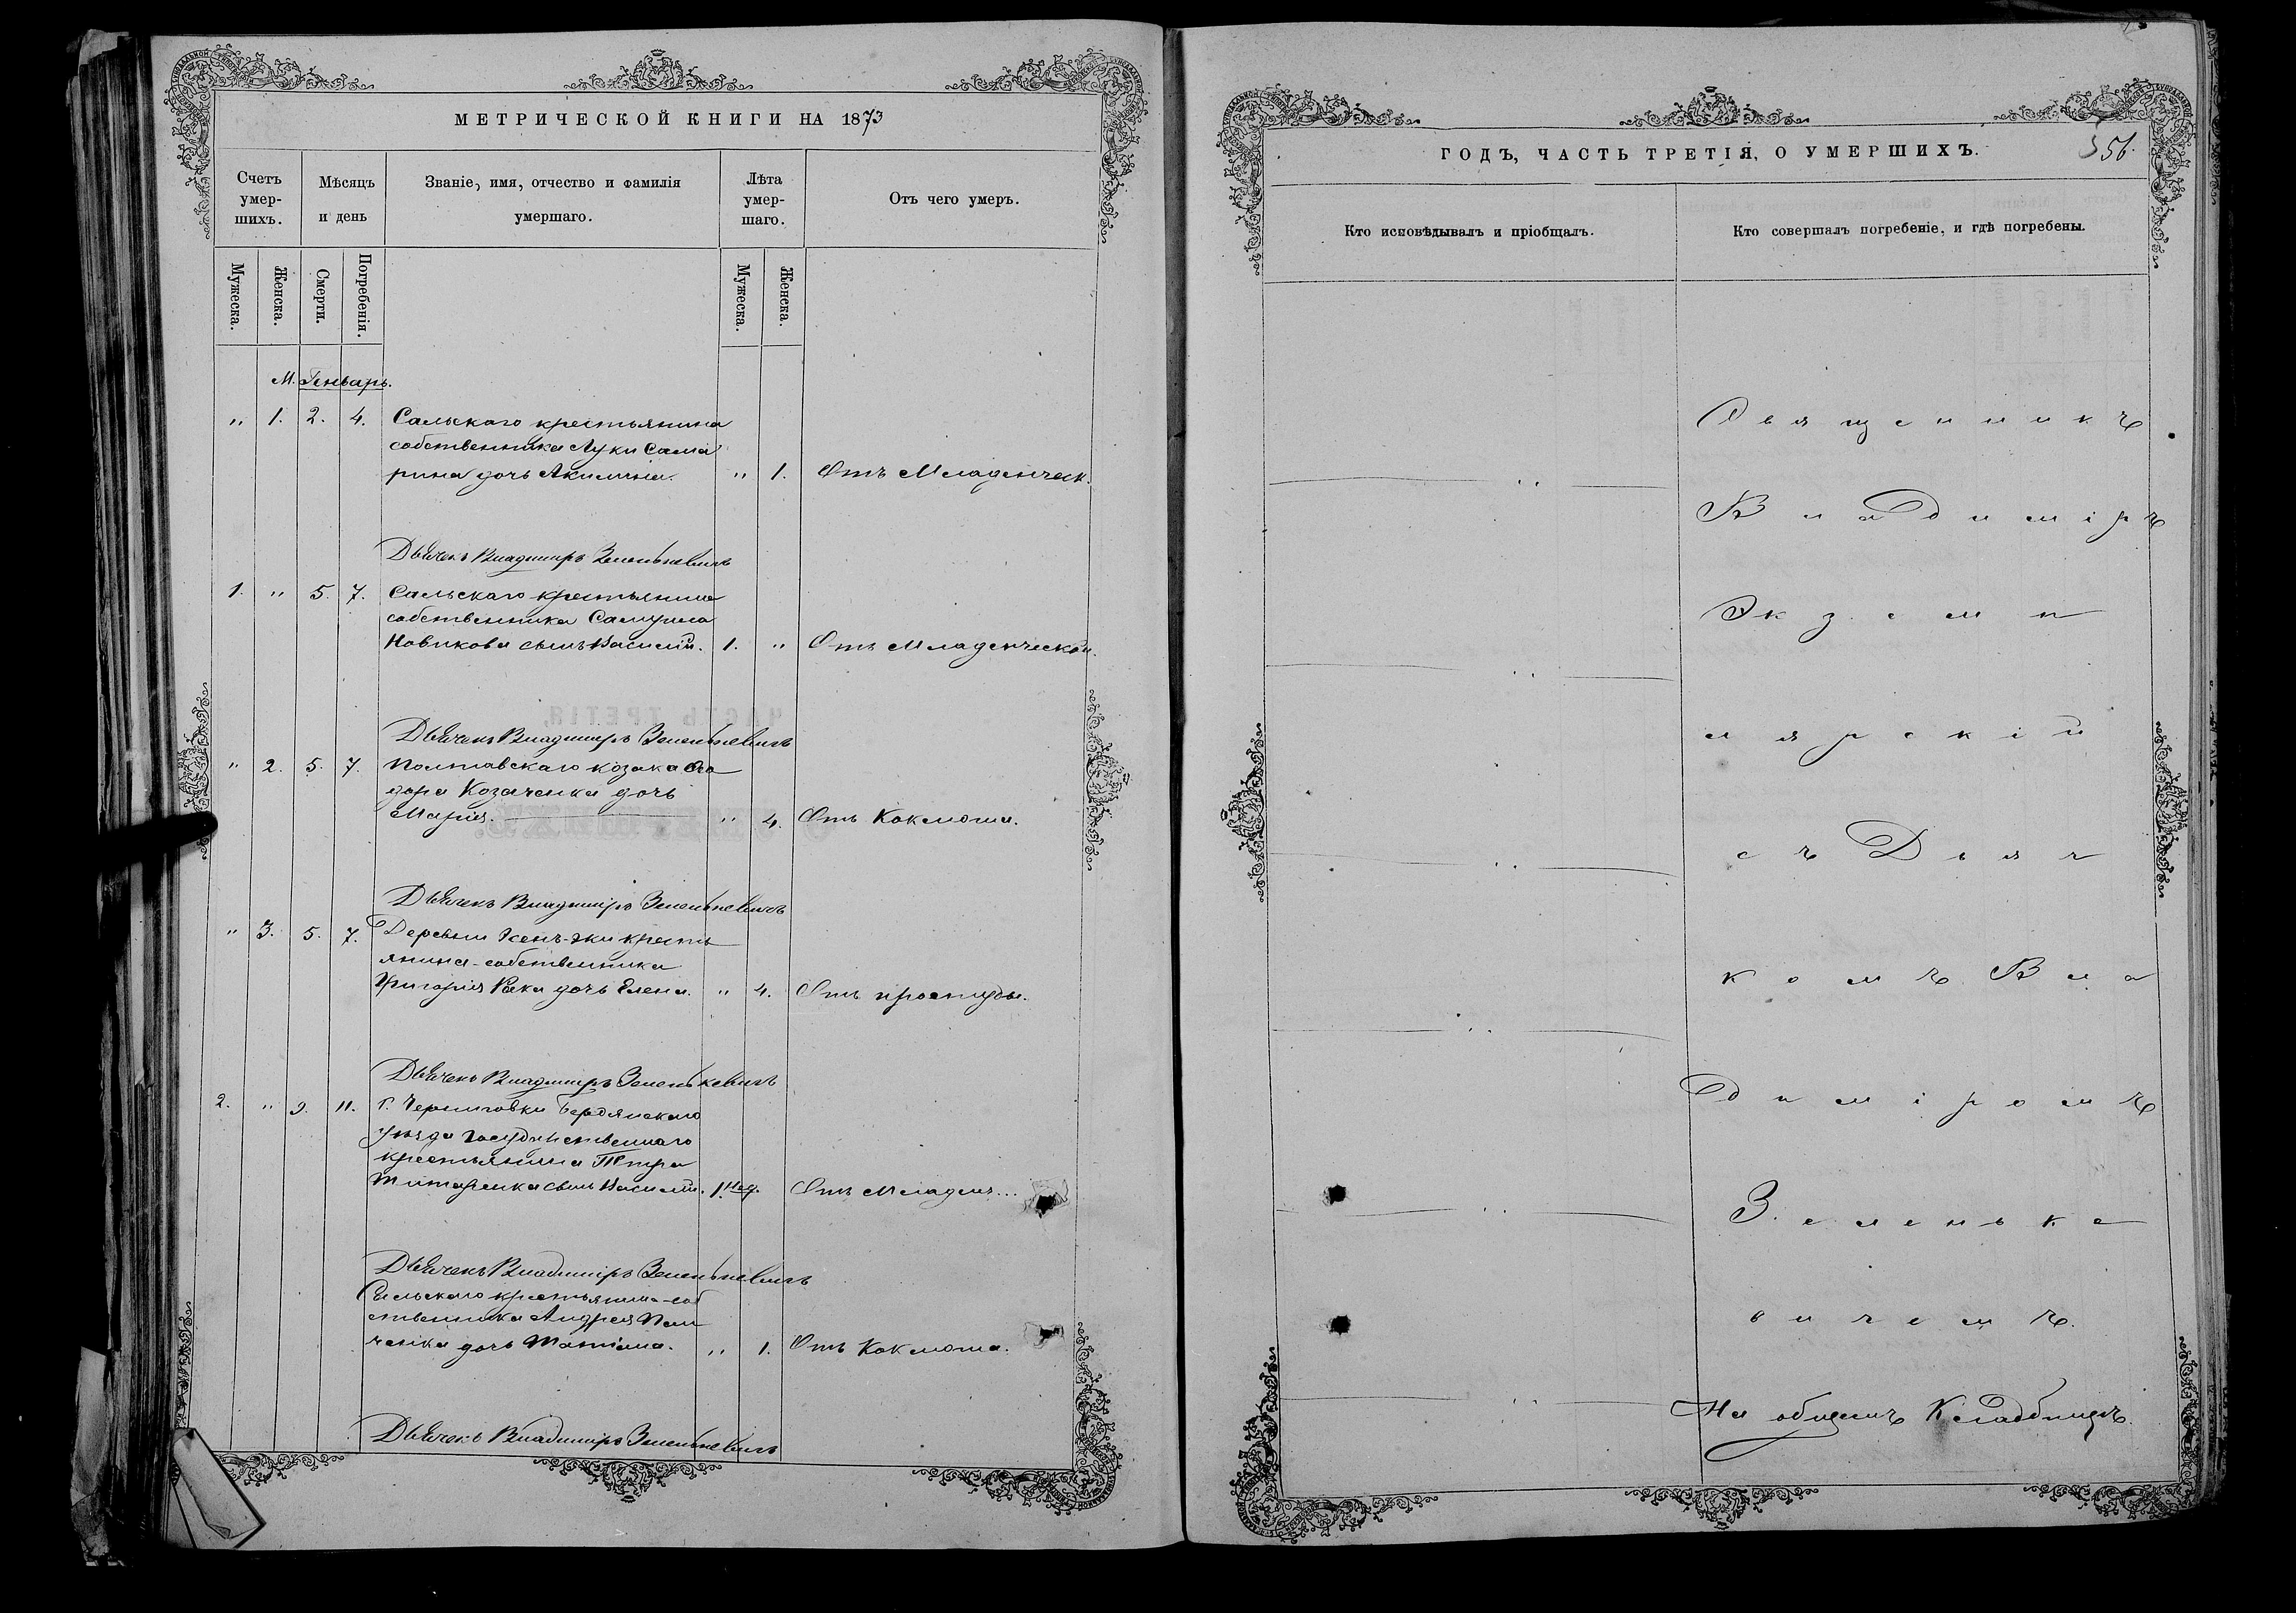 МЕТРИЧЕСКОЙ КНИГИ НА 1873
Счетъ умер-шихъ.
Мѣсяцъ и день
Званіе, имя, отчество и фамилія умершаго.
Лѣта умер-шаго.
Отъ чего умеръ.
Мужеска.
Женска.
Смерти.
Погребенія.
Мужеска.
Женска.
М. Генварь.
" 1. 2. 4. Сальскаго крестьянина
собственника Луки Сама
рина дочь Акилина. " 1. Отъ Младенческ.
Дьячекъ Владиміръ Зеленькевичъ
1. " 5. 7. Сальскаго крестьянина
собственника
Новикова сынъ Василій. 1. " Отъ Младенческой.
Дьячекъ Владиміръ Зеленькевичъ
" 2. 5. 7. Полтавскаго козака Ѳео
дора Козаченка дочь
Марія. " 4. Отъ Коклюша.
Дьячекъ Владиміръ Зеленькевичъ
" 3. 5. 7. Деревни крестъ
янина-собственника
Григорія дочь Елена. " 4. Отъ простуды.
Дьячекъ Владиміръ Зеленькевичъ
2. " 9. 11. с. Черниговки Бердянскаго
уѣзда государственнаго
крестьянина Петра
Титаренка сынъ Василій. 1. нед. Отъ Младен...
Дьячекъ Владиміръ Зеленькевичъ
Сальскаго крестьянина-соб
ственника Андрея Пан
ченка дочь Татіана. " 1. Отъ Коклюша.
Дьячекъ Владиміръ Зеленькевичъ
ГОДЪ, ЧАСТЬ ТРЕТІЯ, О УМЕРШИХЪ.
356.
Кто исповѣдывалъ и пріобщалъ.
Кто совершалъ погребеніе, и гдѣ погребены.
Священникъ
Владиміръ
Экземп
лярскій
съ Дьяч
комъ Вла
диміромъ
Зеленьке
вичемъ.
На общемъ Кладбищѣ.